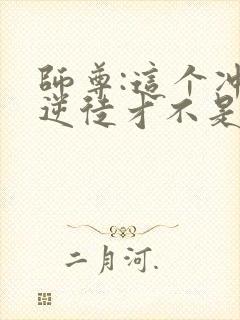 師尊:這个冲
逆徒才不是
二月河.